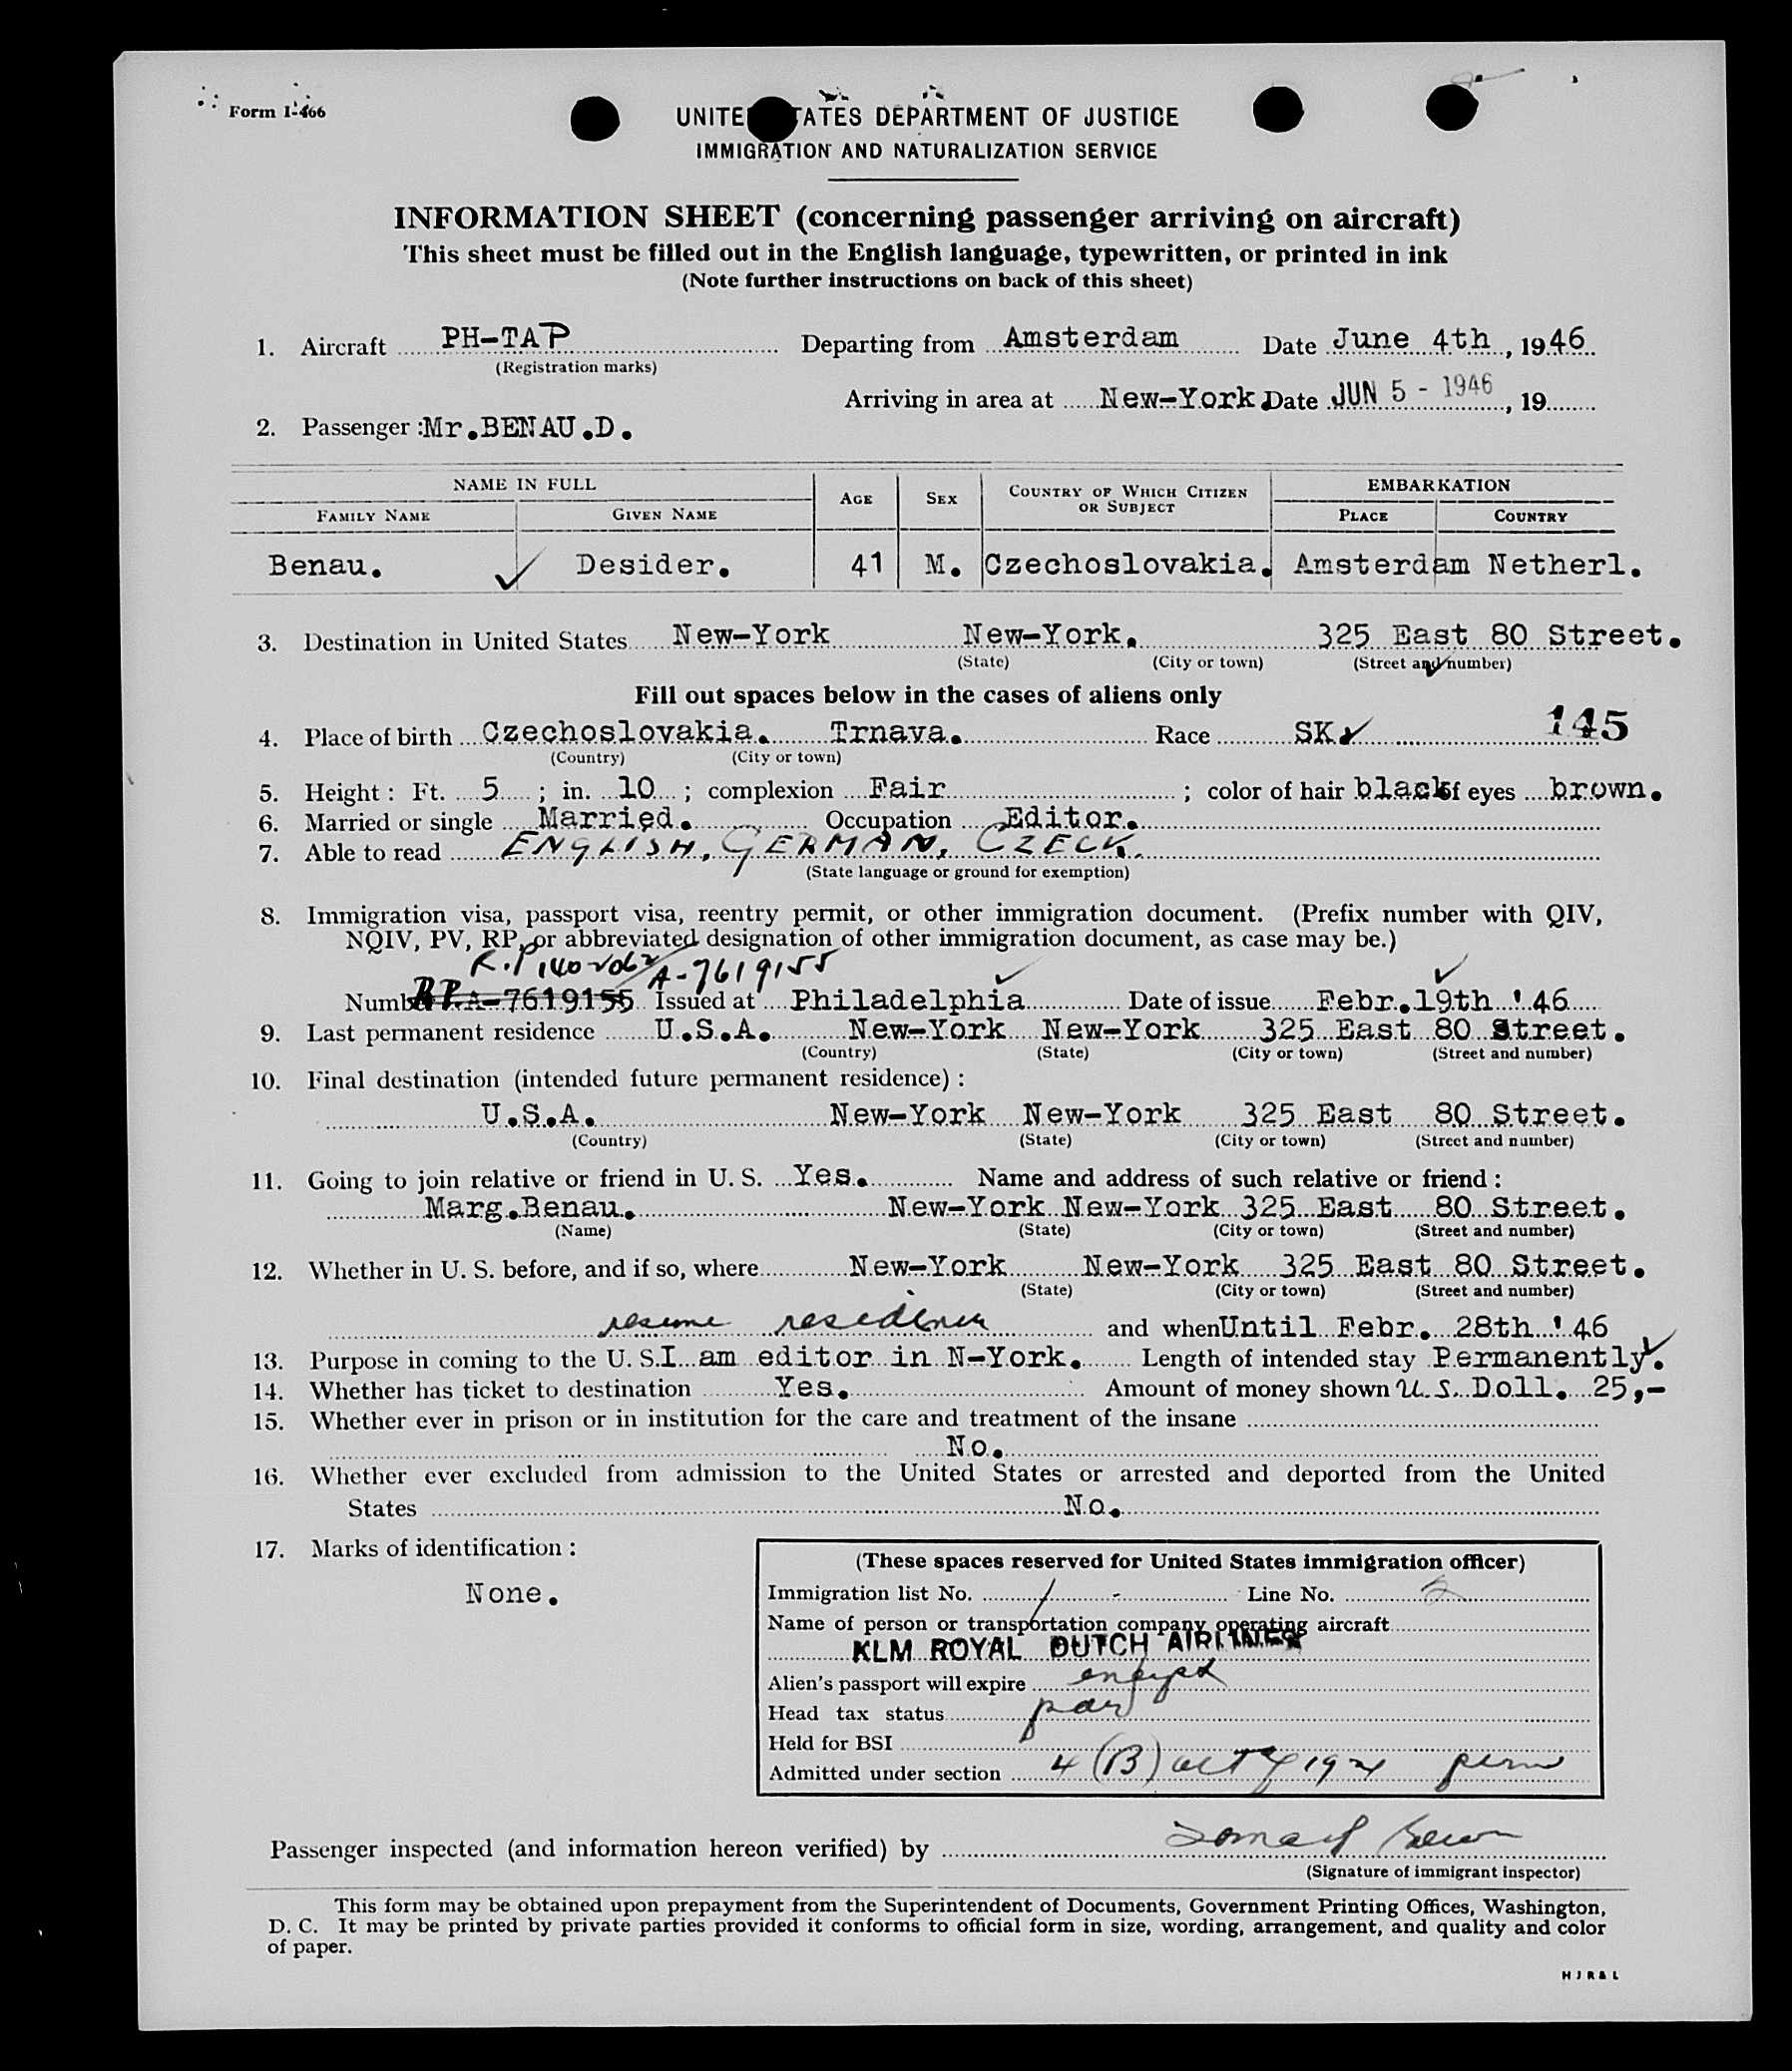 Form I-466
UNITE ATES DEPARTMENT OF JUSTICE
IMMIGRATION AND NATURALIZATION SERVICE
INFORMATION SHEET (concerning passenger arriving on aircraft)
This sheet must be filled out in the English language, typewritten, or printed in ink
(Note further instructions on back of this sheet)
1. Aircraft PH-TAP Departing from Amsterdam Date June 4th, 1946
(Registration marks)
Arriving in area at New-York Date JUN 5 - 1946, 19
2. Passenger :Mr.BENAU.D.
NAME IN FULL AGE SEX COUNTRY OF WHICH CITIZEN OR SUBJECT EMBARKATION
FAMILY NAME GIVEN NAME PLACE COUNTRY
Benau. Desider. 41 M. Czechoslovakia. Amsterdam Netherl.
3. Destination in United States New-York New-York. 325 East 80 Street.
(State) (City or town) (Street and number)
Fill out spaces below in the cases of aliens only
4. Place of birth Czechoslovakia. Trnava. Race SK 145
(Country) (City or town)
5. Height: Ft. 5; in. 10; complexion Fair; color of hair black of eyes brown.
6. Married or single Married. Occupation Editor.
7. Able to read ENGLISH, GERMAN, CZECK.
(State language or ground for exemption)
8. Immigration visa, passport visa, reentry permit, or other immigration document. (Prefix number with QIV,
NQIV, PV, RP, or abbreviated designation of other immigration document, as case may be.)
R.P. A-7619155
Number RP.A-7619155 Issued at Philadelphia Date of issue Febr.19th '46
9. Last permanent residence U.S.A. New-York New-York 325 East 80 street.
(Country) (State) (City or town) (Street and number)
10. Final destination (intended future permanent residence):
U.S.A. New-York New-York 325 East 80 Street.
(Country) (State) (City or town) (Street and number)
11. Going to join relative or friend in U. S. Yes. Name and address of such relative or friend:
Marg.Benau. New-York New-York 325 East 80 Street.
(Name) (State) (City or town) (Street and number)
12. Whether in U. S. before, and if so, where New-York New-York 325 East 80 Street.
(State) (City or town) (Street and number)
resume residence and when Until Febr. 28th '46
13. Purpose in coming to the U. S. I am editor in N-York. Length of intended stay Permanently.
14. Whether has ticket to destination Yes. Amount of money shown U.S. Doll. 25,-
15. Whether ever in prison or in institution for the care and treatment of the insane
No.
16. Whether ever excluded from admission to the United States or arrested and deported from the United
States No.
17. Marks of identification:
None.
(These spaces reserved for United States immigration officer)
Immigration list No. 1 Line No. 2
Name of person or transportation company operating aircraft
KLM ROYAL DUTCH AIRLINES
Alien's passport will expire
Head tax status
Held for BSI
Admitted under section 4 (B) act of 1924 perm
Passenger inspected (and information hereon verified) by
(Signature of immigrant inspector)
This form may be obtained upon prepayment from the Superintendent of Documents, Government Printing Offices, Washington,
D. C. It may be printed by private parties provided it conforms to official form in size, wording, arrangement, and quality and color
of paper.
H J R & L